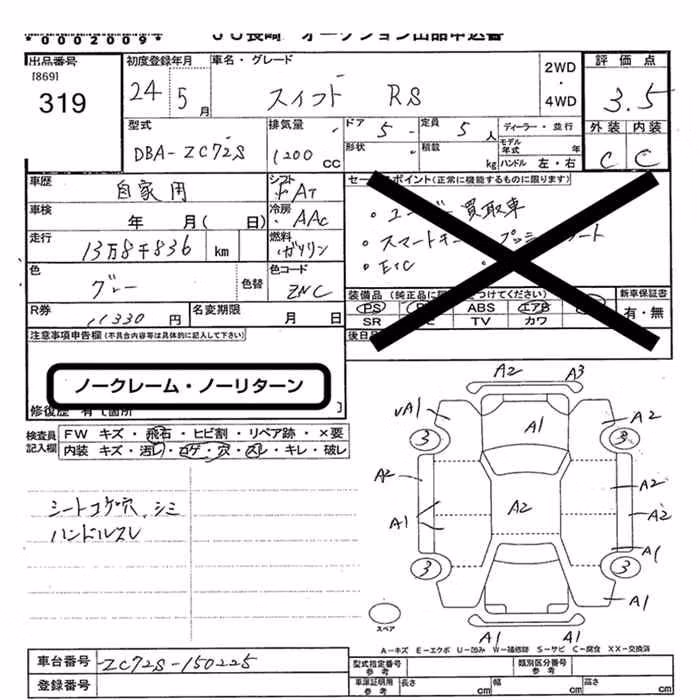 *0002009*
JU長崎 オークション出品申込書
出品番号
[869]
319
初度登録年月
24 5月
車名・グレード
スイフト RS
2WD
・
4WD
評価点
3.5
外装 内装
C C
型式
DBA-ZC72S
排気量
1200cc
ドア 5
形状
定員 5人
積載 kg
ディーラー・並行
モデル年式 年
ハンドル 左・右
車歴
自家用
シフト
FAT
車検
年 月( 日)
冷房
AAC
走行
13万8千836 km
燃料
ガソリン
色
グレー
色替
色コード
ZNC
R券
11330円
名変期限
月 日
セールスポイント(正常に機能するものに限ります)
・ユーザー買取車
・スマートキー プッシュスタート
・ETC
装備品 (純正品に をつけてください)
PS ABS エアB
SR TV カワ
新車保証書
有・無
後日
注意事項申告欄(不具合内容等は具体的に記入して下さい)
ノークレーム・ノーリターン
修復歴 有(箇所 )
検査員記入欄
FW キズ・飛石・ヒビ割・リペア跡・×要
内装 キズ・汚レ・コゲ・穴・スレ・キレ・破レ
シートコゲ穴、シミ
ハンドルスレ
A2 A3
vA1 A1 A2
3 3
A2 A2
A1 A2 A2
A1
3 3
A1
A1 A1
スペア
A-キズ E-エクボ U-凹み W-補修跡 S-サビ C-腐食 XX-交換済
車台番号 ZC72S-150225
登録番号
型式指定番号 参考
類別区分番号 参考
車庫証明用 参考 長さ cm 幅 cm 高さ cm